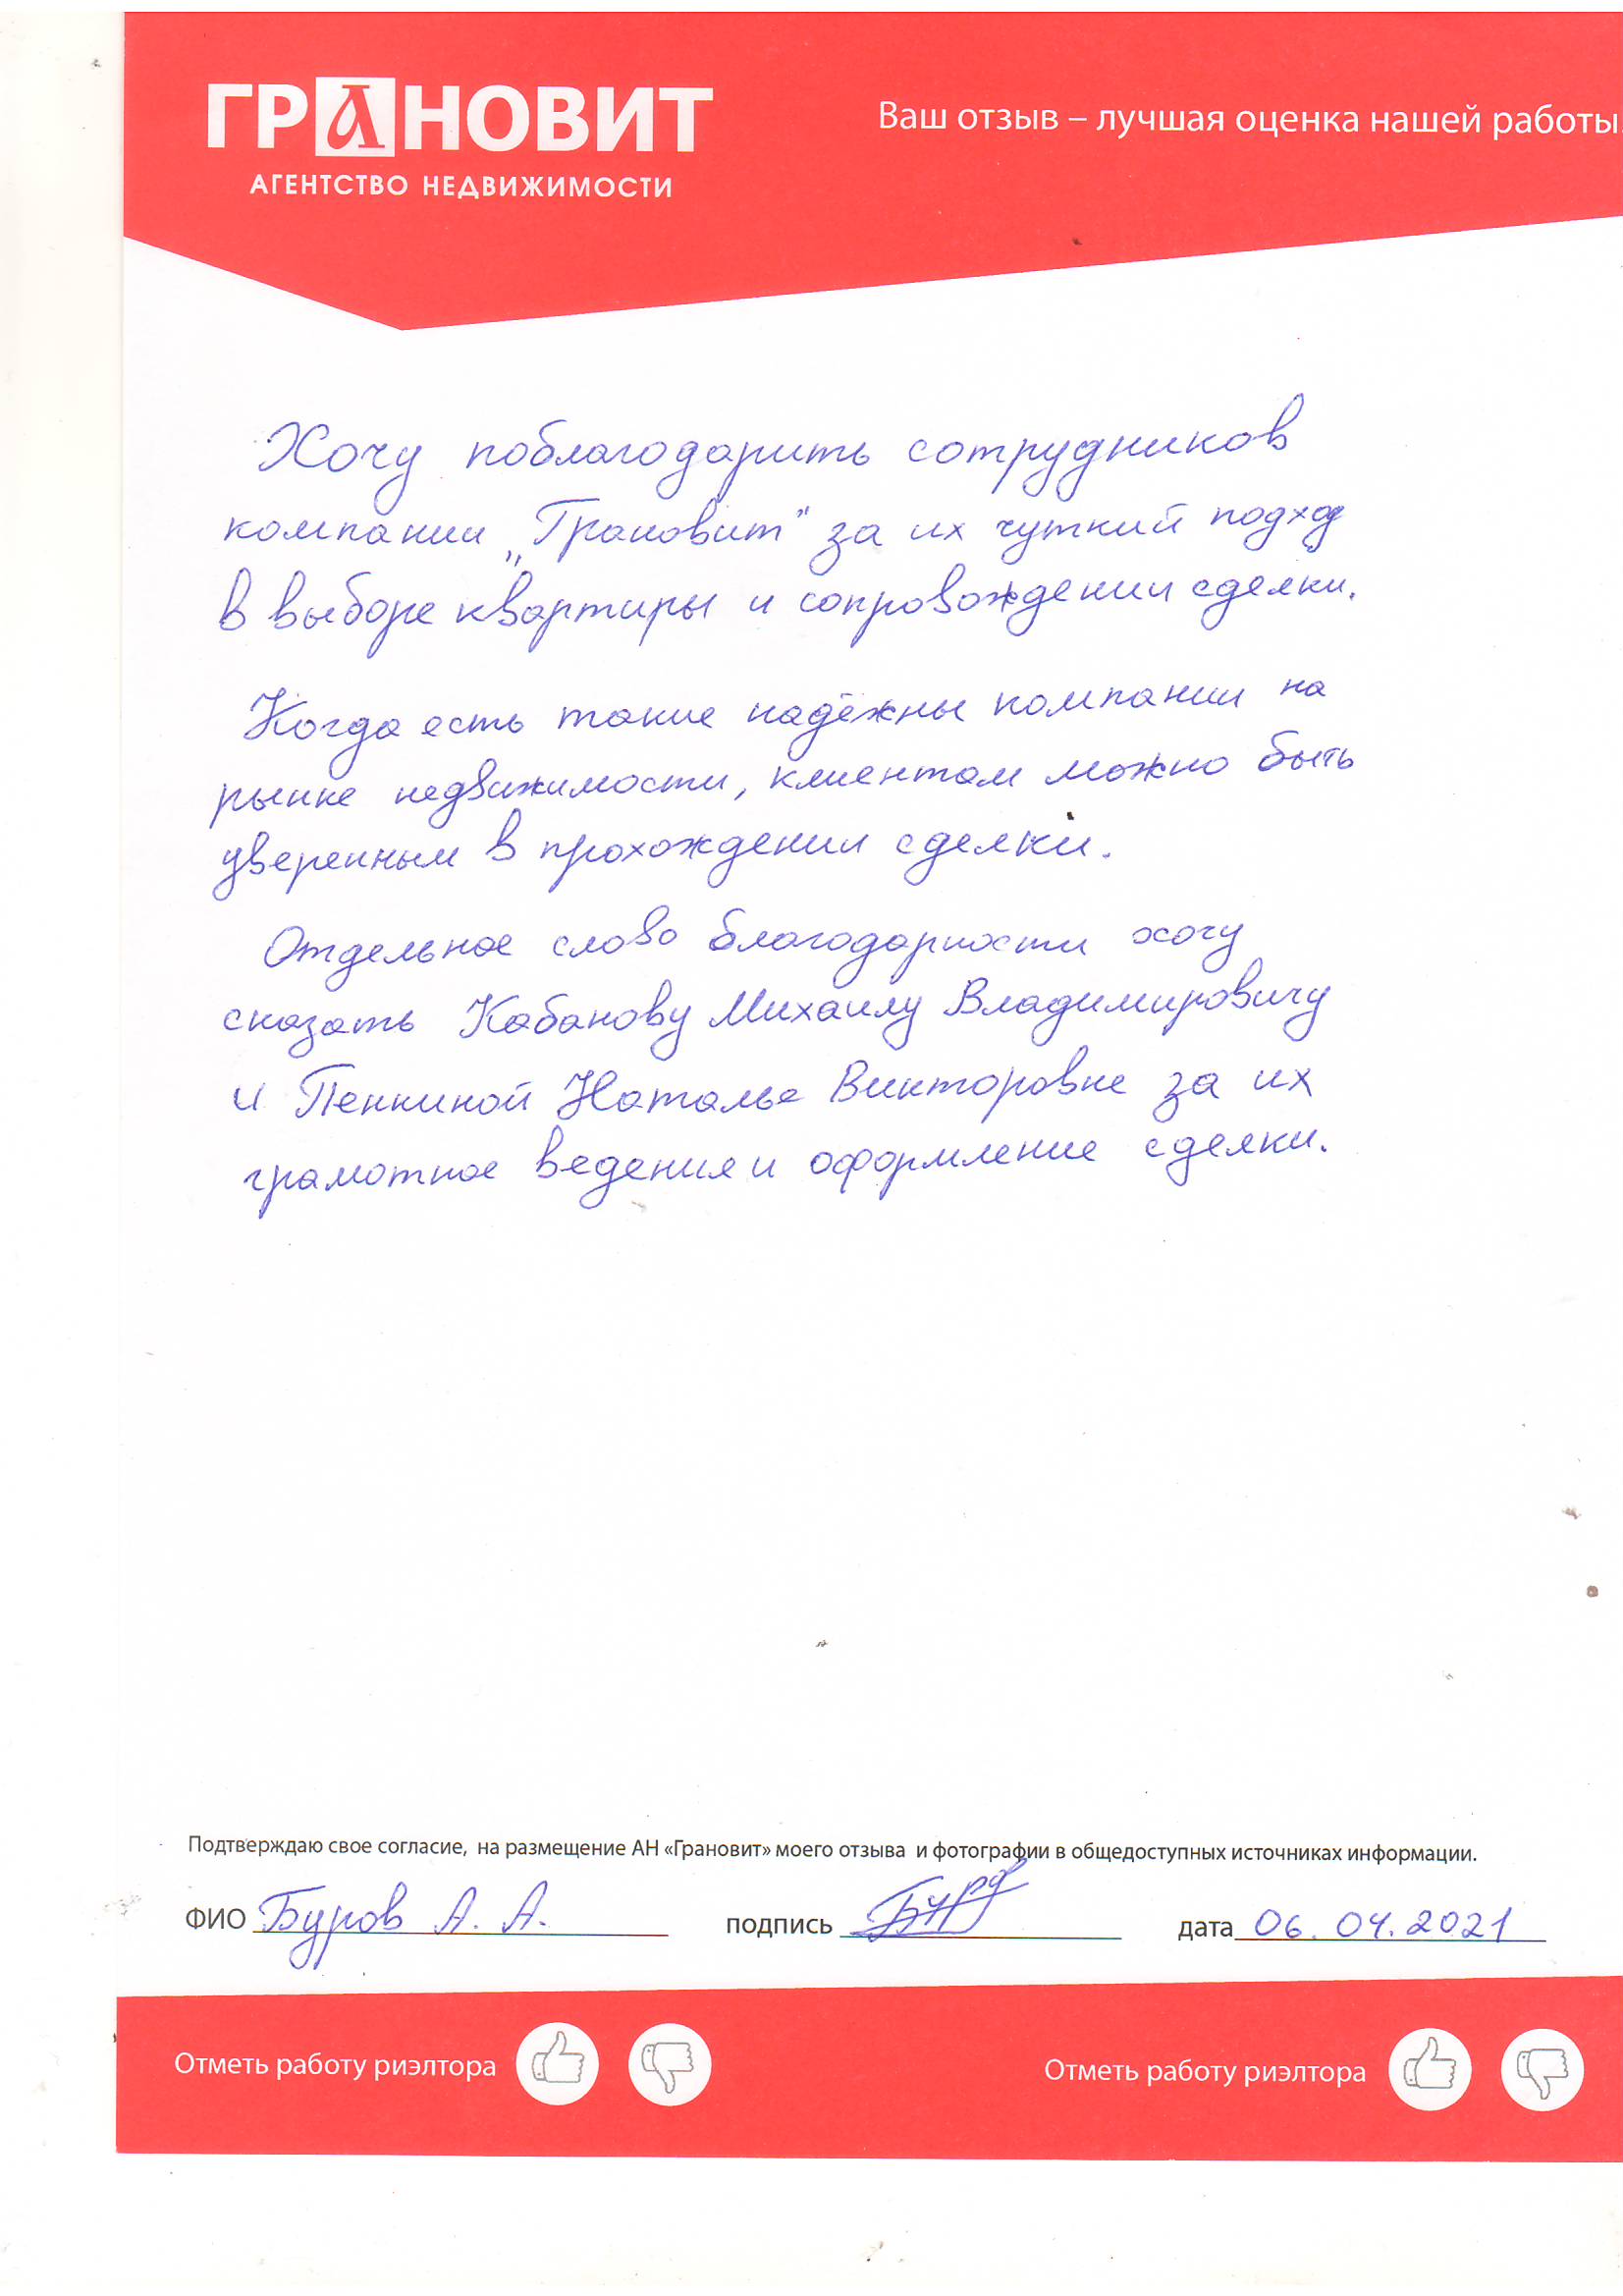 ГРАНОВИТ
АГЕНТСТВО НЕДВИЖИМОСТИ
Ваш отзыв – лучшая оценка нашей работы
Хочу поблагодарить сотрудников
компании „Грановит" за их чуткий подход
в выборе квартиры и сопровождении сделки.
Когда есть такие надёжные компании на
рынке недвижимости, клиентам можно быть
уверенным в прохождении сделки.
Отдельное слово благодарности хочу
сказать Кабанову Михаилу Владимировичу
и Пенкиной Наталье Викторовне за их
грамотное ведение и оформление сделки.
Подтверждаю свое согласие, на размещение АН «Грановит» моего отзыва и фотографии в общедоступных источниках информации.
ФИО Буров А. А. подпись Буров дата 06.04.2021
Отметь работу риэлтора Отметь работу риэлтора